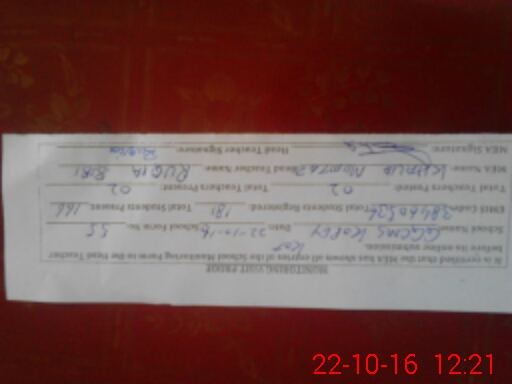 MONITORING VISIT PROOF
It is certified that the MEA has shown all entries of the School Monitoring Form to the Head Teacher
before its online submission.
School Name: Date: 22-10-16 School Form No: 55
EMIS Code: Total Students Registered: 181 Total Students Present: 166
Total Teachers: 02 Total Teachers Present: 02
MEA Name: KHALID MUMTAZ Head Teacher Name: RUQIA BIBI
MEA Signature: Head Teacher Signature:
22-10-16 12:21